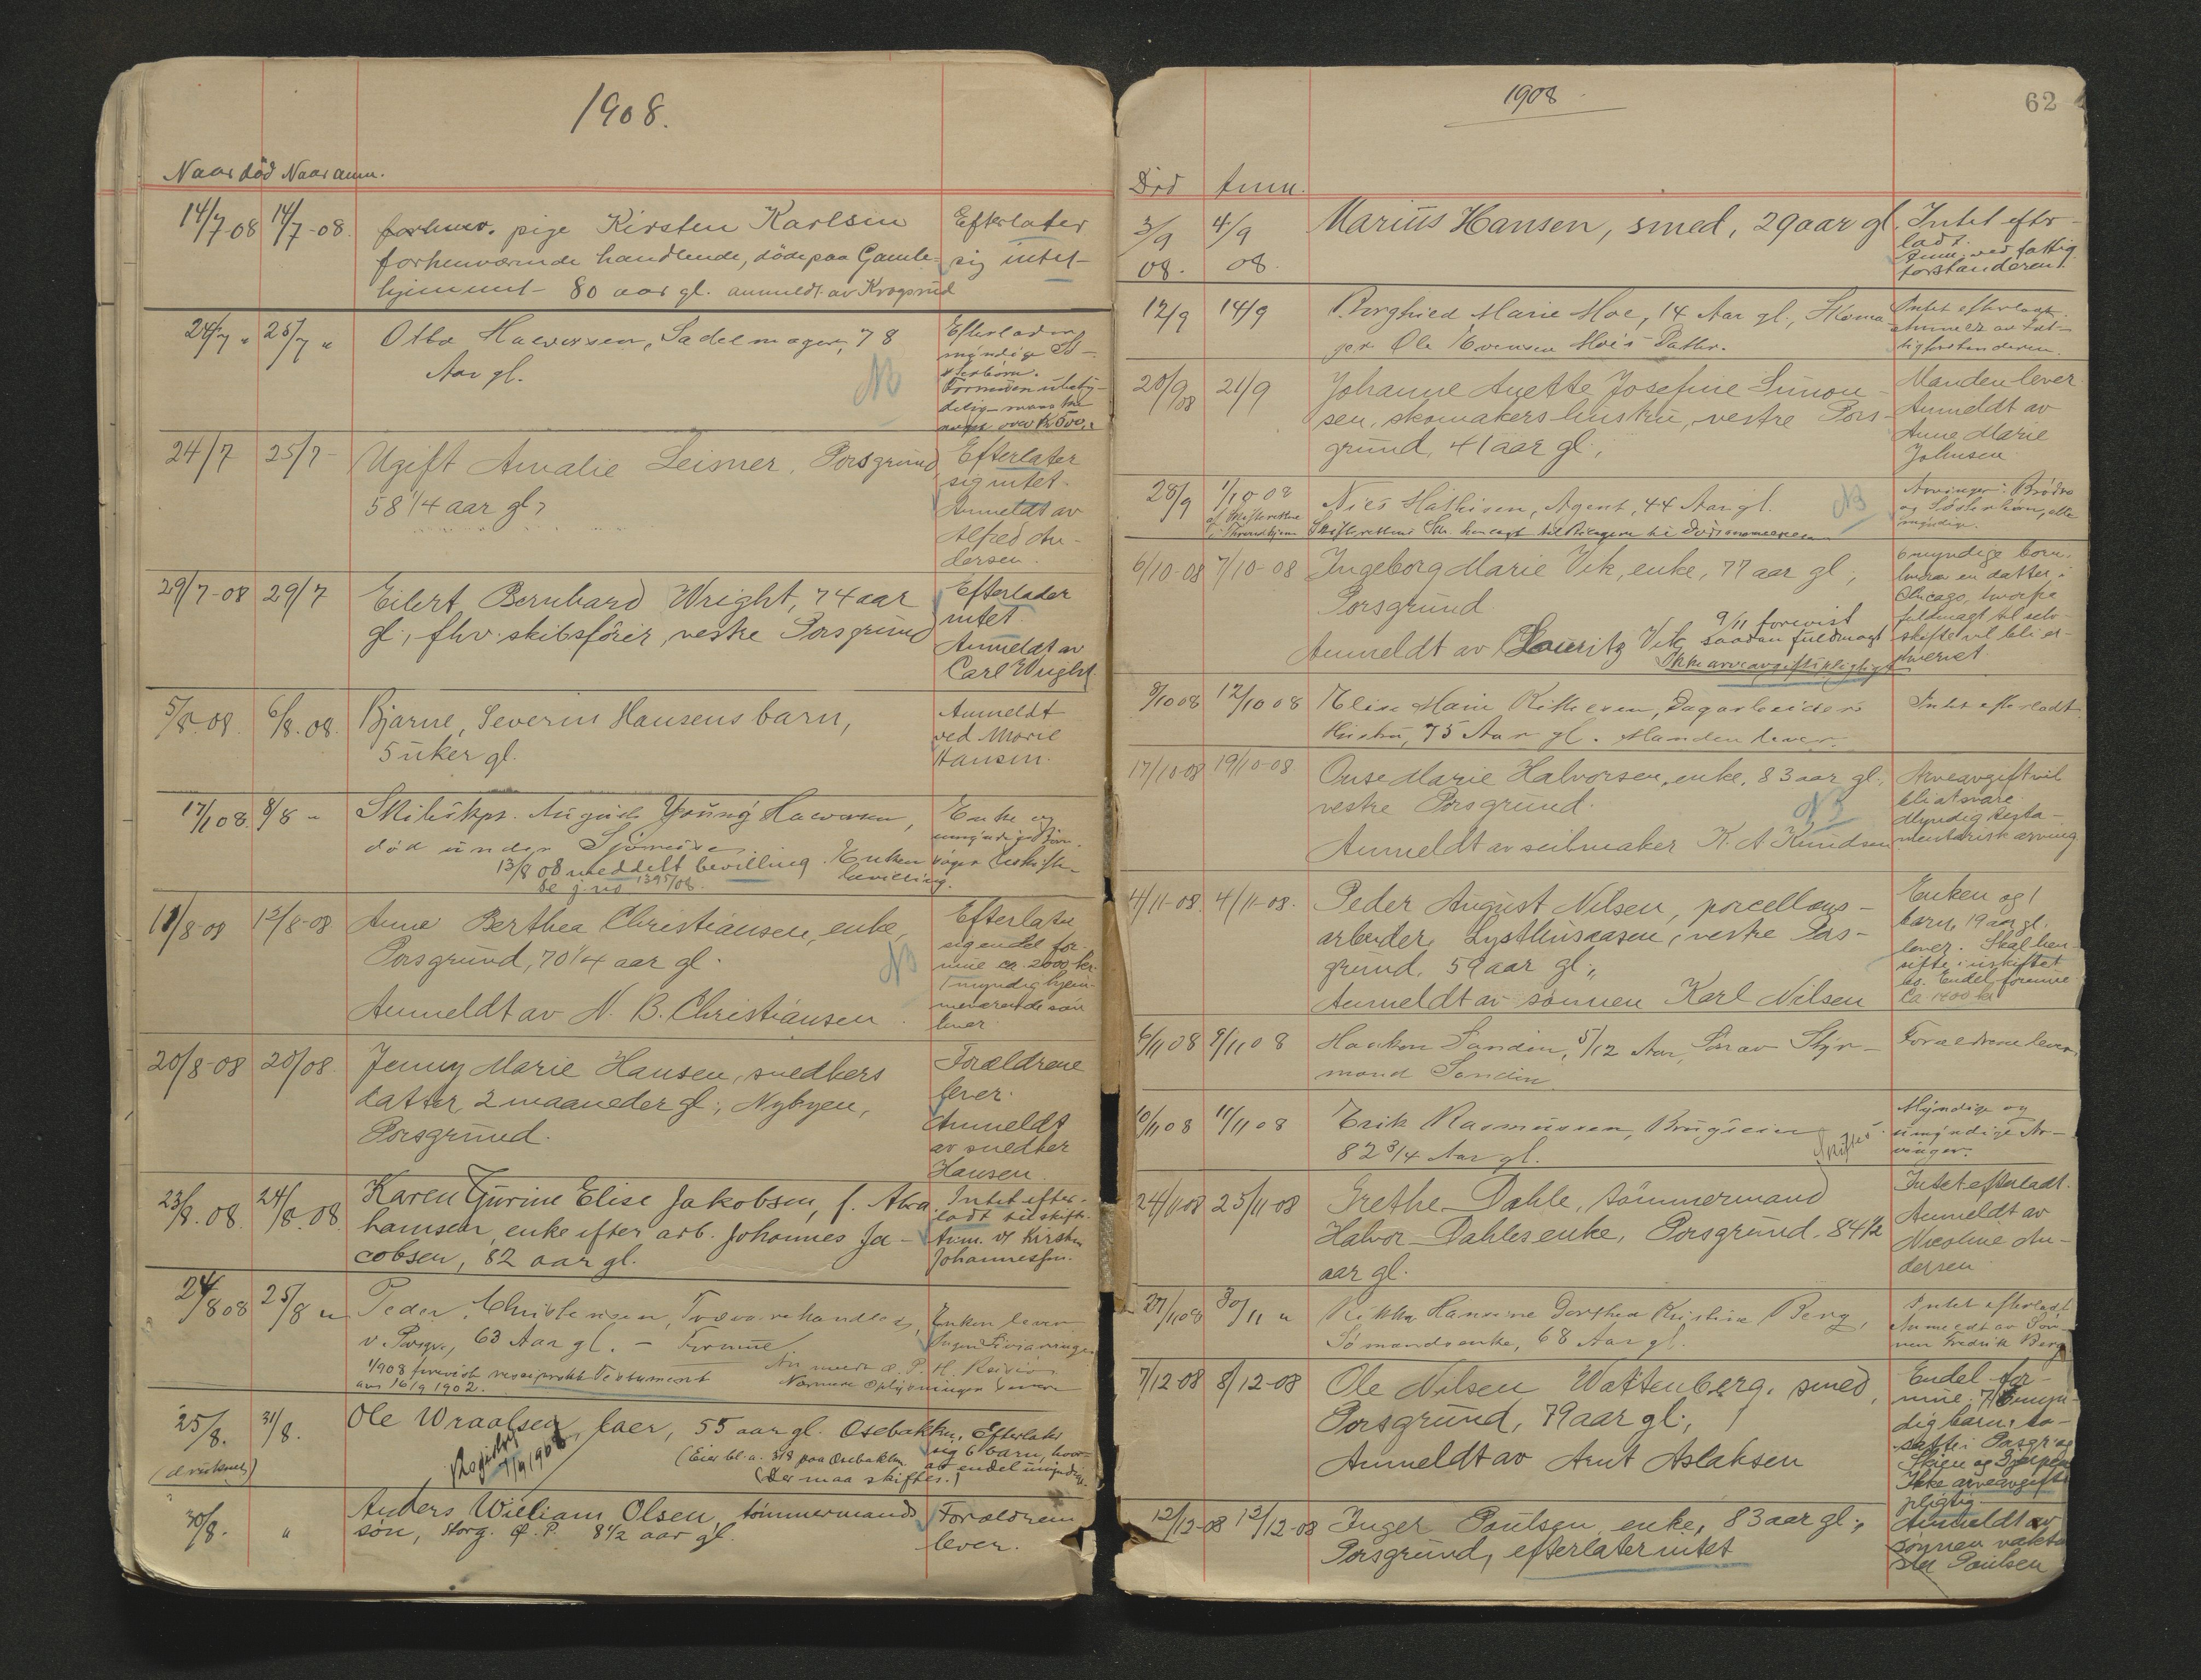 1908.
Naar död Naar anm.
14/7-08 14/7-08. forhenv. pige Kirsten Karlsen Efterlater
forhenværende handlende, döde paa Gamle- sig intet
hjemmet - 80 aar gl. anmeldt av Krogsrud
24/7 " 25/7 " Otto Halvorsen, Sadelmager, 78 Efterlader
Aar gl. myndige
NB
Formuen ubety-
delig
over Kr 500,
24/7 25/7 - Ugift Amalie Leisner, Porsgrund Efterlater
58 1/4 aar gl. sig intet.
Anmeldt av
Alfred An-
dersen.
29/7-08 29/7 Eilert Bernhard Wright, 74 aar Efterlader
gl., fhv. skibsförer, vestre Porsgrund intet.
Anmeldt av
Carl Wright
5/8.08. 6/8.08. Bjarne, Severin Hansens barn, Anmeldt
5 uker gl. ved Marie
Hansen.
17/1 08. 8/8 " Skibskpt. August Young Halvorsen, Enke og
död under umyndige Börn.
13/8 08 meddelt bevilling Enken söger Uskifte-
be j no 1395/08. bevilling.
11/8-08 12/8-08 Anne Berthea Christiansen, enke, Efterlater
Porsgrund, 70 1/4 aar gl. sig endel for-
NB mue ca. 2000 kr.
1 myndig hjem-
Anmeldt av N. B. Christiansen. meværende sön
lever.
20/8-08 20/08. Jenny Marie Hansen, snedkers Forældrene
datter, 2 maaneder gl., Nybyen, lever.
Porsgrund. Anmeldt
av snedker
Hansen.
23/8.08. 24/8.08. Karen Gurine Elise Jakobsen, f. Abra Intet efter-
hamsen, enke efter arb. Johannes Ja- ladt til skifte.
cobsen, 82 aar gl. Anm. v/ Kirsten
Johannessen.
24/8 08 25/8 " Peder Christensen, Trævarehandler, Enken lever
v. Porsgr., 63 Aar gl. - Formue Ingen Livsarvinger
1/9 08 forevist resiprokt Testament
av 16/9 1902. Nærmere Oplysninger senere
25/8. 31/8. Ole Wraalsen, laer, 55 aar gl. Osebakken, Efterlater
(druknet) Registr. 1/9 1908 (Eier bl. a. paa Osebakken. sig 6 barn, hvor-
(Der maa skiftes.) av endel umyndige.
30/8. " Anders William Olsen, tömmermands Forældrene
sön, Storg. Ö. P. 8 1/2 aar gl. lever.
1908
62
Död Anm.
3/9 08. 4/9 08. Marius Hansen, smed, 29 aar gl. Intet efter-
ladt.
Anm. ved fattig-
forstanderen.
12/9 14/9 Borghild Marie Moe, 14 Aar gl., Skoma- Intet efterladt.
ger Ole Evensen Moe's Datter. Anmeldt av fat-
tigforstanderen.
20/9 08 21/9 Johanne Anette Josefine Simon- Manden lever.
sen, skomakers hustru, vestre Pors- Anmeldt av
grund, 41 aar gl., Anne Marie
Johnsen.
28/9 1/10-08 Nils Mathisen, Agent, 44 Aar gl. NB Arvinger: Brödre
af Skifteretten og Söskenbörn, alle
i Throndhjem myndige.
6/10-08 7/10-08 Ingeborg Marie Vik, enke, 77 aar gl., 6 myndige börn,
Porsgrund hvorav en datter i
Chicago, hvorfra
9/11 forevist fuldmagt til selv-
Anmeldt av Lauritz Vik saadan fuldmagt skifte vil bli er-
Ikke arveavgiftspligtigt hvervet.
9/10 08 12/10 08 Elise Marie Kittelsen, Dagarbeiders Intet efterladt.
Hustru, 75 Aar gl. Manden lever.
17/10-08 19/10-08 Onse Marie Halvorsen, enke, 83 aar gl., Arveavgift vil
vestre Porsgrund. bli at svare
NB Myndig testa-
Anmeldt av seilmaker K. A. Knudsen mentarisk arving
4/11-08. 4/11-08. Peder August Nilsen, porcellæns- Enken og 1
arbeider, Lysthusaasen, vestre Pors- barn, 19 aar gl.
grund, 59 aar gl., lever. Skal hen-
sitte i uskiftet
bo. Endel formue
Anmeldt av sönnen Karl Nilsen Ca 1400 kr
6/11 08 9/11 08 Haakon Sandin, 5/12 Aar, Sön av Styr- Forældrene lever.
mand Sandin.
10/11 08 11/11 08 Erik Rasmussen, Brugseier Myndige og
82 3/4 Aar gl. Skiftes umyndige Ar-
vinger.
24/11 08 25/11-08 Grethe Dahle, tömmermand Intet efterladt.
Halvor Dahles enke, Porsgrund. 84 1/2 Anmeldt av
aar gl. Nicoline An-
dersen
27/11 08 30/11 " Rikka Hansine Dorthea Kristine Berg, Intet efterladt
Sömandsenke, 68 Aar gl. Anmeldt av Sön-
nen Fredrik Berg
7/12-08 8/12-08 Ole Nilsen Wattenberg, smed, Endel for-
Porsgrund, 79 aar gl., mue, 7 myn-
dig barn, bo-
Anmeldt av Arnt Aslaksen satte i Porsgr. og
Skien og Gjerpen
Ikke arveavgifts
pligtig
12/12-08 12/12-08 Inger Poulsen, enke, 83 aar gl., Anmeldt av
Porsgrund, efterlater intet sönnen
Poulsen